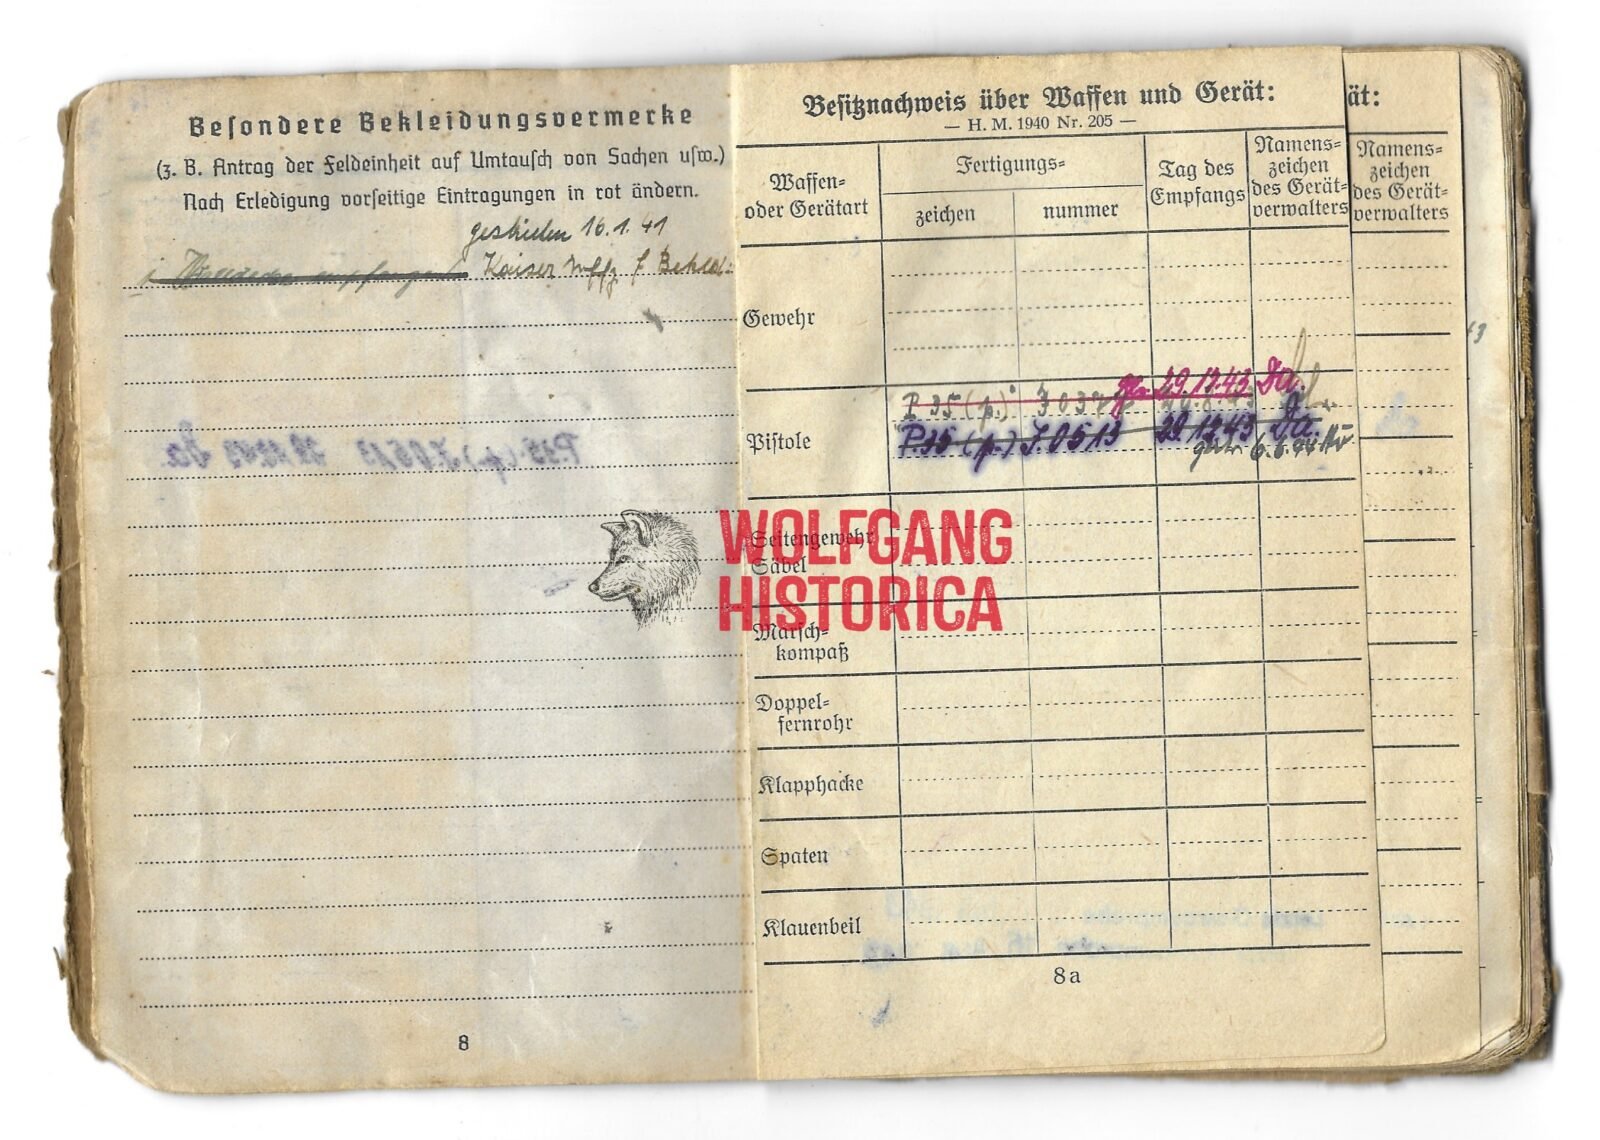 Besondere Bekleidungsvermerke
(z. B. Antrag der Feldeinheit auf Umtausch von Sachen usw.)
Nach Erledigung vorseitige Eintragungen in rot ändern.
16.1.41
Kaiser Uffz
8
Besitznachweis über Waffen und Gerät:
— H. M. 1940 Nr. 205 —
Waffen-
oder Gerätart
Fertigungs-
zeichen
nummer
Tag des
Empfangs
Namens-
zeichen
des Gerät-
verwalters
Gewehr
Pistole
P. 35 (p.)
29.12.43 Da.
P. 35 (p.) J.0513 29.12.43 Da.
6.6.44
Seitengewehr
Säbel
Marsch-
kompaß
Doppel-
fernrohr
Klapphacke
Spaten
Klauenbeil
8a
ät:
Namens-
zeichen
des Gerät-
verwalters
WOLFGANG
HISTORICA